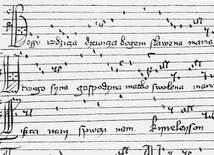 ogu rodzica dzewica bogem slawena maria
twego syna gospodzina matko swolena maria
sisci nam spwczi nam. Kyrieleyson